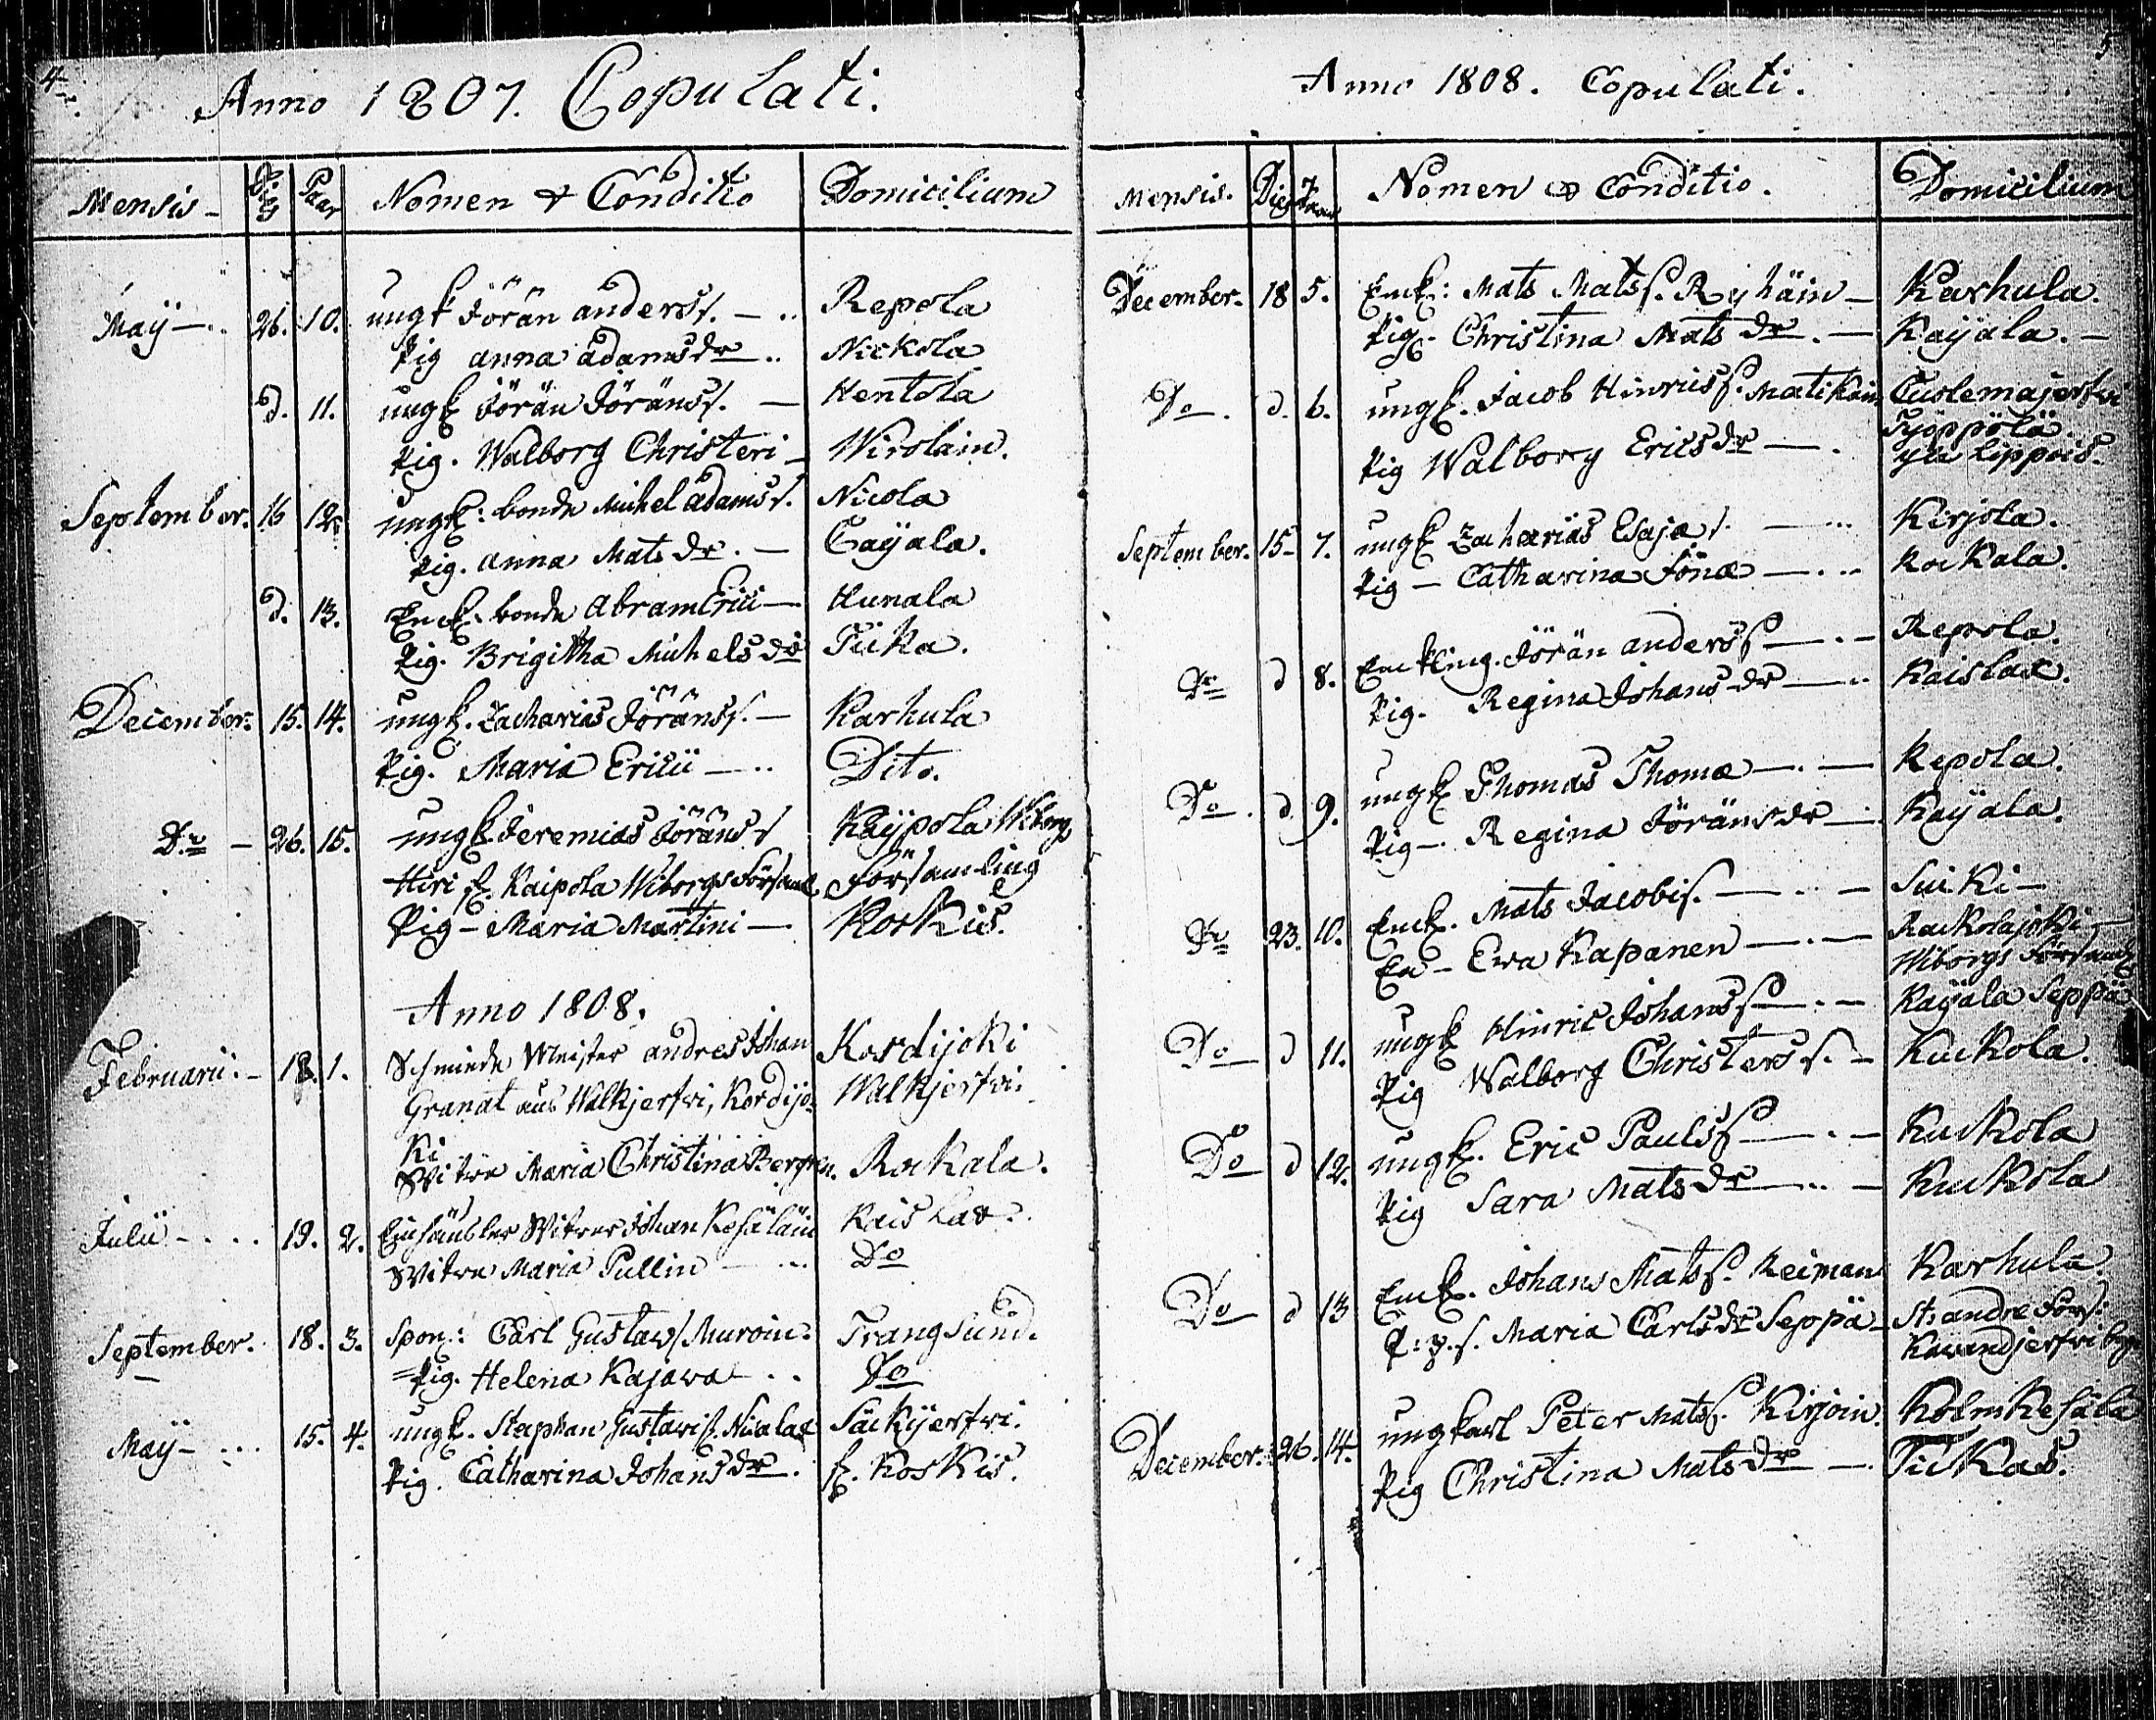 4
Anno 1807. Copulati.
Mensis - Dies Paar Nomen & Conditio Domicilium
Maÿ - .. 26. 10. ungk Jöran anders s. - .. Repola
Pig anna adamsdr .. Nickola
d. 11. ungk Jöran Jöranss. - Hentola
Pig. Walborg Christeri - Wirolain.
September. 16 12. ungk: bonde Michel adams s. Nicola
Pig. anna Mats dr. - Caÿala.
d. 13. Enck. bonde Abram Erici - Hunala
Pig. Brigitha Michelsdr Tiika.
December: 15. 14. ungk. Zacharias Jöranss. - Karhula
Pig. Maria Ericii - .. Dito.
Do - 26. 15. ungk Jeremias Jörans s Kaÿpola Wiborgs
Hiri fr. Kaipola Wiborgs Församl. Församling
Pig - Maria Martini - Koskis.
Anno 1808.
Februarii. - 18. 1. Schmiede Meister andres Johan Kordijoki
Granat aus Walkjerfwi, Kordijo- Walkjerfwi.
ki
Witwe Maria Christina Bergren. Rockala.
Julii - ... 19. 2. Einhäusler Witwer Johan Kesäläin Kaislax.
Witwe Maria Pullin - ... Do
September. 18. 3. Spon: Carl Gustaws. Muroin. Trangsund.
Pig. Helena Kajawa - .. Do
Maÿ - ... 15. 4. ungk. Staphan Gustavis. Nicalax Säckijerfwi.
Pig. Catharina Johansdr. f. Koskis.
5
Anno 1808. Copulati.
Mensis. Dies Paar Nomen & Conditio. Domicilium
December. 18 5. Enck: Mats Matss. Ryhäin - Karhula.
Pig. Christina Mats dr. - Kaÿala. -
Do. d. 6. ungk. Jacob Hinricss. Matikain Cuolemajerfwi
Pig Walborg Ericsdr - . Työppölä.
yla Lippois.
September. 15 - 7. ungk Zacharias Esajæ s. - ... Kirjola.
Pig - Catharina Jönæ - ... Rockala.
Do d 8. Enckling. Jöran anderss - . - Repola.
Pig. Regina Johans dr - .. Kaislax.
Do . d. 9. ungk Thomas Thomæ - . - Repola.
Pig - Regina Jöransdr - . Kaÿala.
Do 23. 10. Enck. Mats Jacobis. - .. - Suiki -
En - Ewa Kapanen - . - Rackolajoki,
Wiborgs Församl
Do - d 11. ungk Hinric Johanss - . - Kaÿala Seppä
Pig Walborg Christers s. - Kuckola
Do d 12. ungk. Eric Paulss - . - Kuckola
Pig Sara Matsdr - .. - Kuckola
Do - d 13 Enck. Johans Matss. Reiman Karhula.
Maria Carlsdr Seppä - St: andre Förs:
Kawandjerfwi by
December. 26. 14. ungkarl Peter Matss. Kirjoin. Kolmkesälä
Pig Christina Matsdr - . Tiikas.